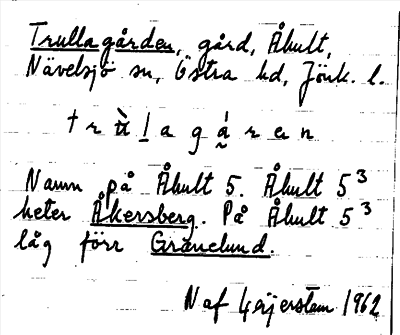 Trullagården, gård, Åhult,
Nävelsjö sn, Östra hd, Jönk. l.
trùl̲agá̰ren
Namn på Åhult 5. Åhult 5³
heter Åkersberg. På Åhult 5³
låg förr Granelund.
N af Geijerstam 1962